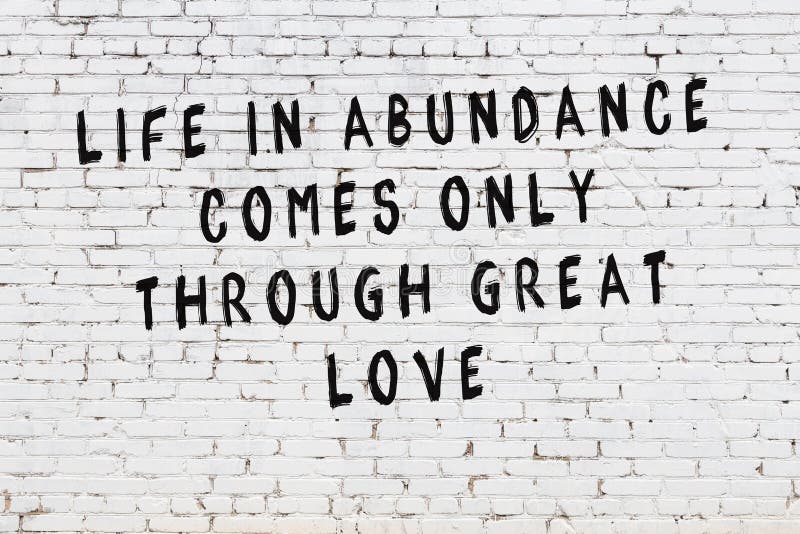 LIFE IN ABUNDANCE
COMES ONLY
THROUGH GREAT
LOVE